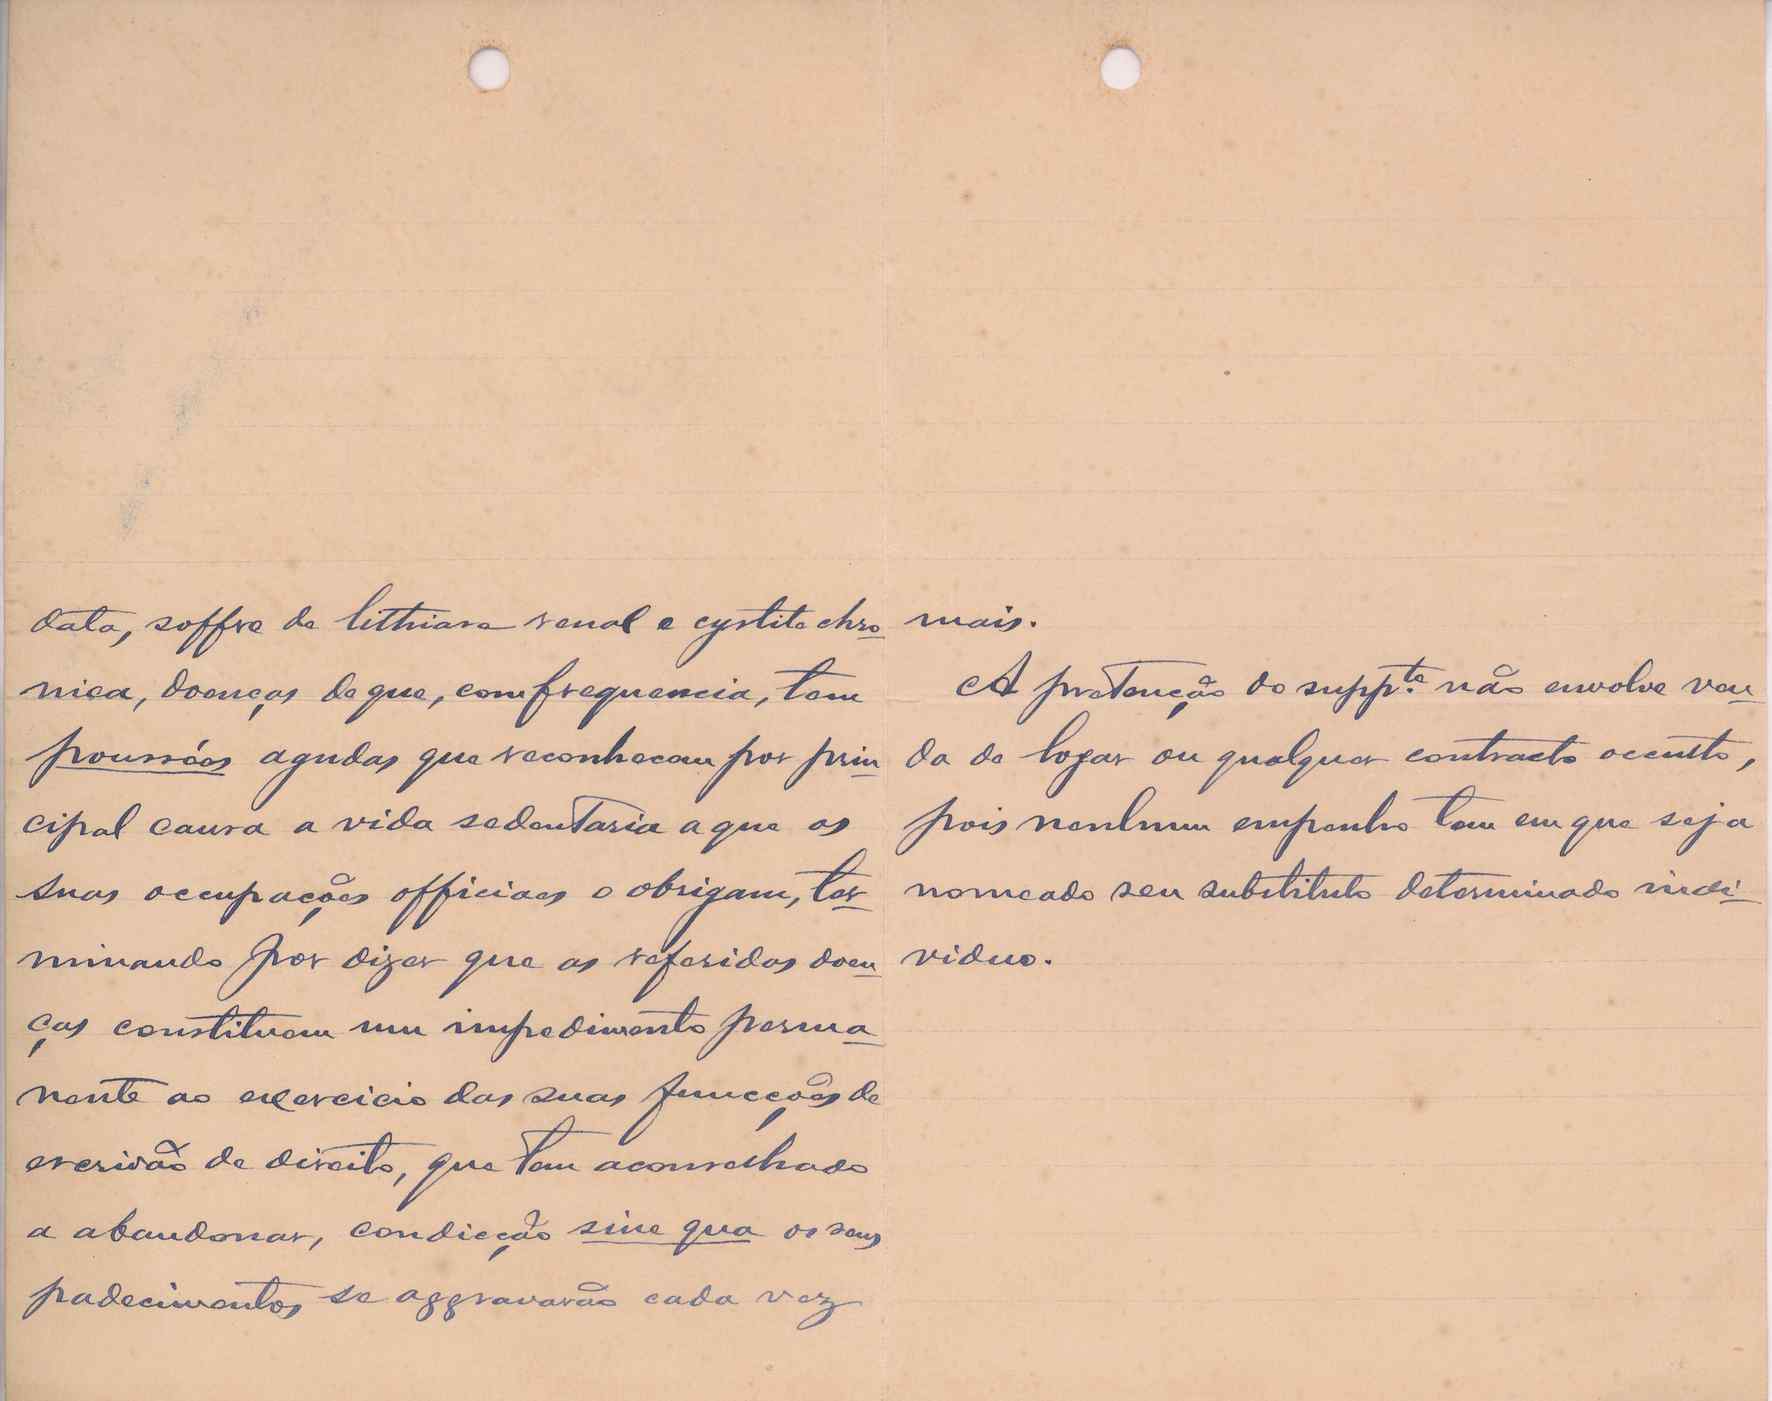 data, soffre de lithiase renal e cystite chro
nica, doenças de que, com frequencia, tem
poussées agudas que reconhecem por prin
cipal causa a vida sedentaria a que as
suas occupações officiaes o obrigam, ter
minando por dizer que as referidas doen
ças constituem um impedimento perma
nente ao exercicio das suas funcções de
escrivão de direito, que tem aconselhado
a abandonar, condicção sine qua os seus
padecimentos se aggravarão cada vez
mais.
A pretenção do supp.te não envolve ven
da de logar ou qualquer contracto occulto,
pois nenhum empenho tem em que seja
nomeado seu substituto determinado indi
viduo.